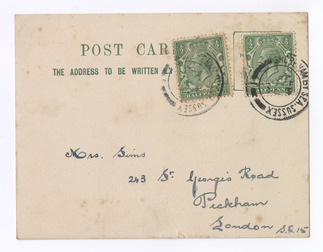 POST CAR
THE ADDRESS TO BE WRITTEN
SUSSEX
BY SEA. SUSSEX
Mrs. Sims
243 St. George's Road
Peckham
London S.E.15